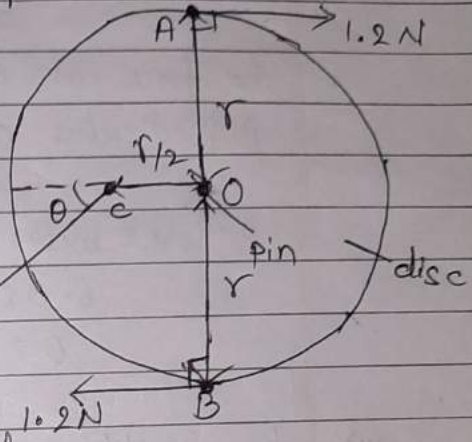 A
1.2 N
r
r/2
θ
C
O
pin
r
disc
1.2N
B